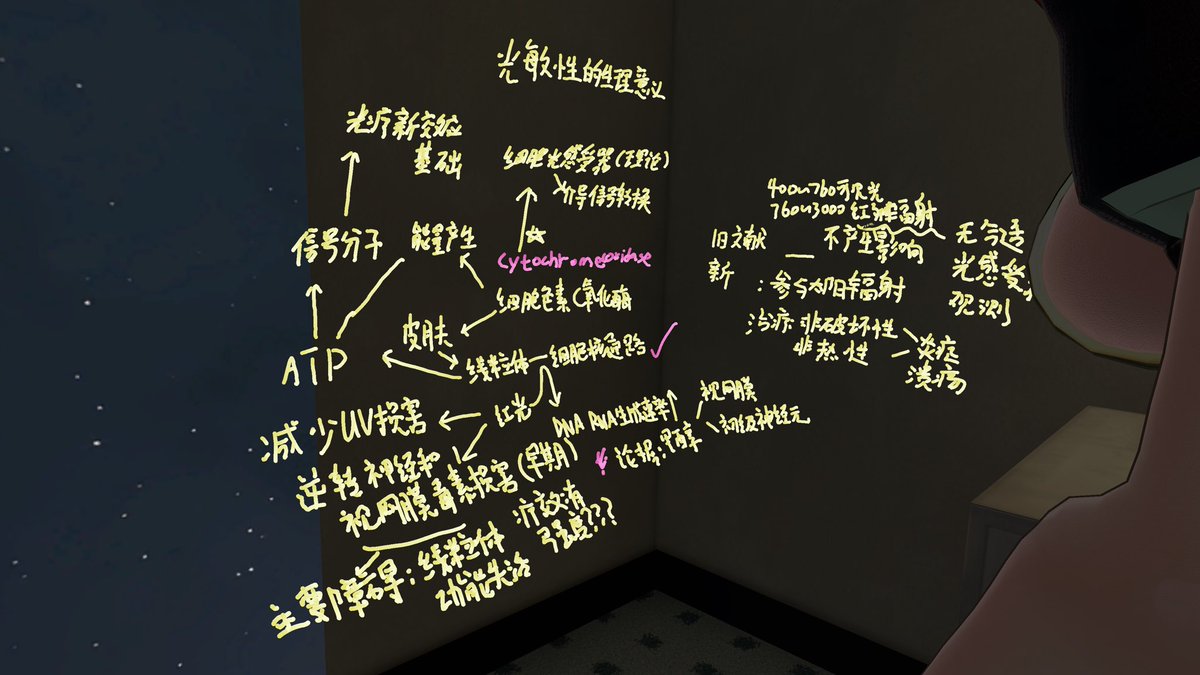 光敏性的生理意义
光疗新效应
基础
细胞光感受器(理论)
介导信号转换
信号分子
能量产生
cytochromeoxidase
细胞色素C氧化酶
皮肤
ATP
线粒体—细胞核通路
减少UV损害
红光
DNA RNA生成速率↑
视网膜
初级神经元
论据:甲醇
逆转神经和
视网膜毒素损害(早期)
疗效有
强度???
主要障碍:线粒体
功能失活
400~760可见光
760~3000红外辐射
旧文献 — 不产生影响
无合适
光感受
观测
新:参与太阳辐射
治疗:非破坏性
非热性
炎症
溃疡